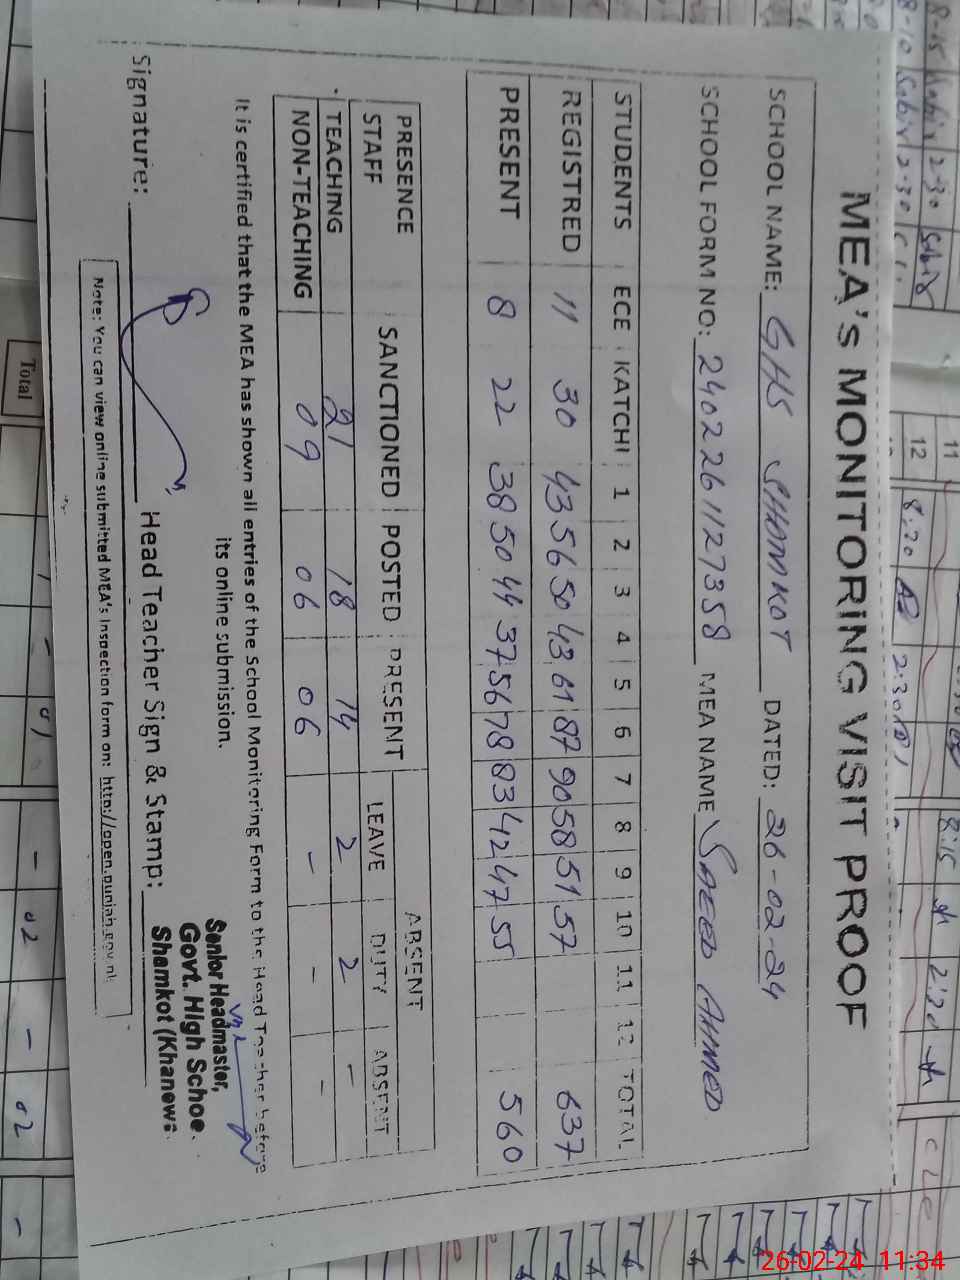 MEA's MONITORING VISIT PROOF
SCHOOL NAME: GHS SHAMKOT DATED: 26-02-24
SCHOOL FORM NO: 2402261127358 MEA NAME SAEED AHMED
STUDENTS ECE KATCHI 1 2 3 4 5 6 7 8 9 10 11 12 TOTAL
REGISTRED 11 30 43 56 50 43 61 87 90 58 51 57 637
PRESENT 8 22 38 50 44 37 56 78 83 42 47 55 560
PRESENCE ABSENT
STAFF SANCTIONED POSTED PRESENT LEAVE DUTY ABSENT
TEACHING 21 18 14 2 2 -
NON-TEACHING 09 06 06 - - -
It is certified that the MEA has shown all entries of the School Monitoring Form to the Head Teacher before
its online submission.
Senior Headmaster,
Govt. High Schoo
Shamkot (Khanewa
Signature: Head Teacher Sign & Stamp:
Note: You can view online submitted MEA's Inspection form on: http://open.punjab.gov.pk
Total
11
12 8:20 2:30
8:15 2:30
8-15 2-30
8-10 2-30
01
- 02 - 02 -
26-02-24 11:34